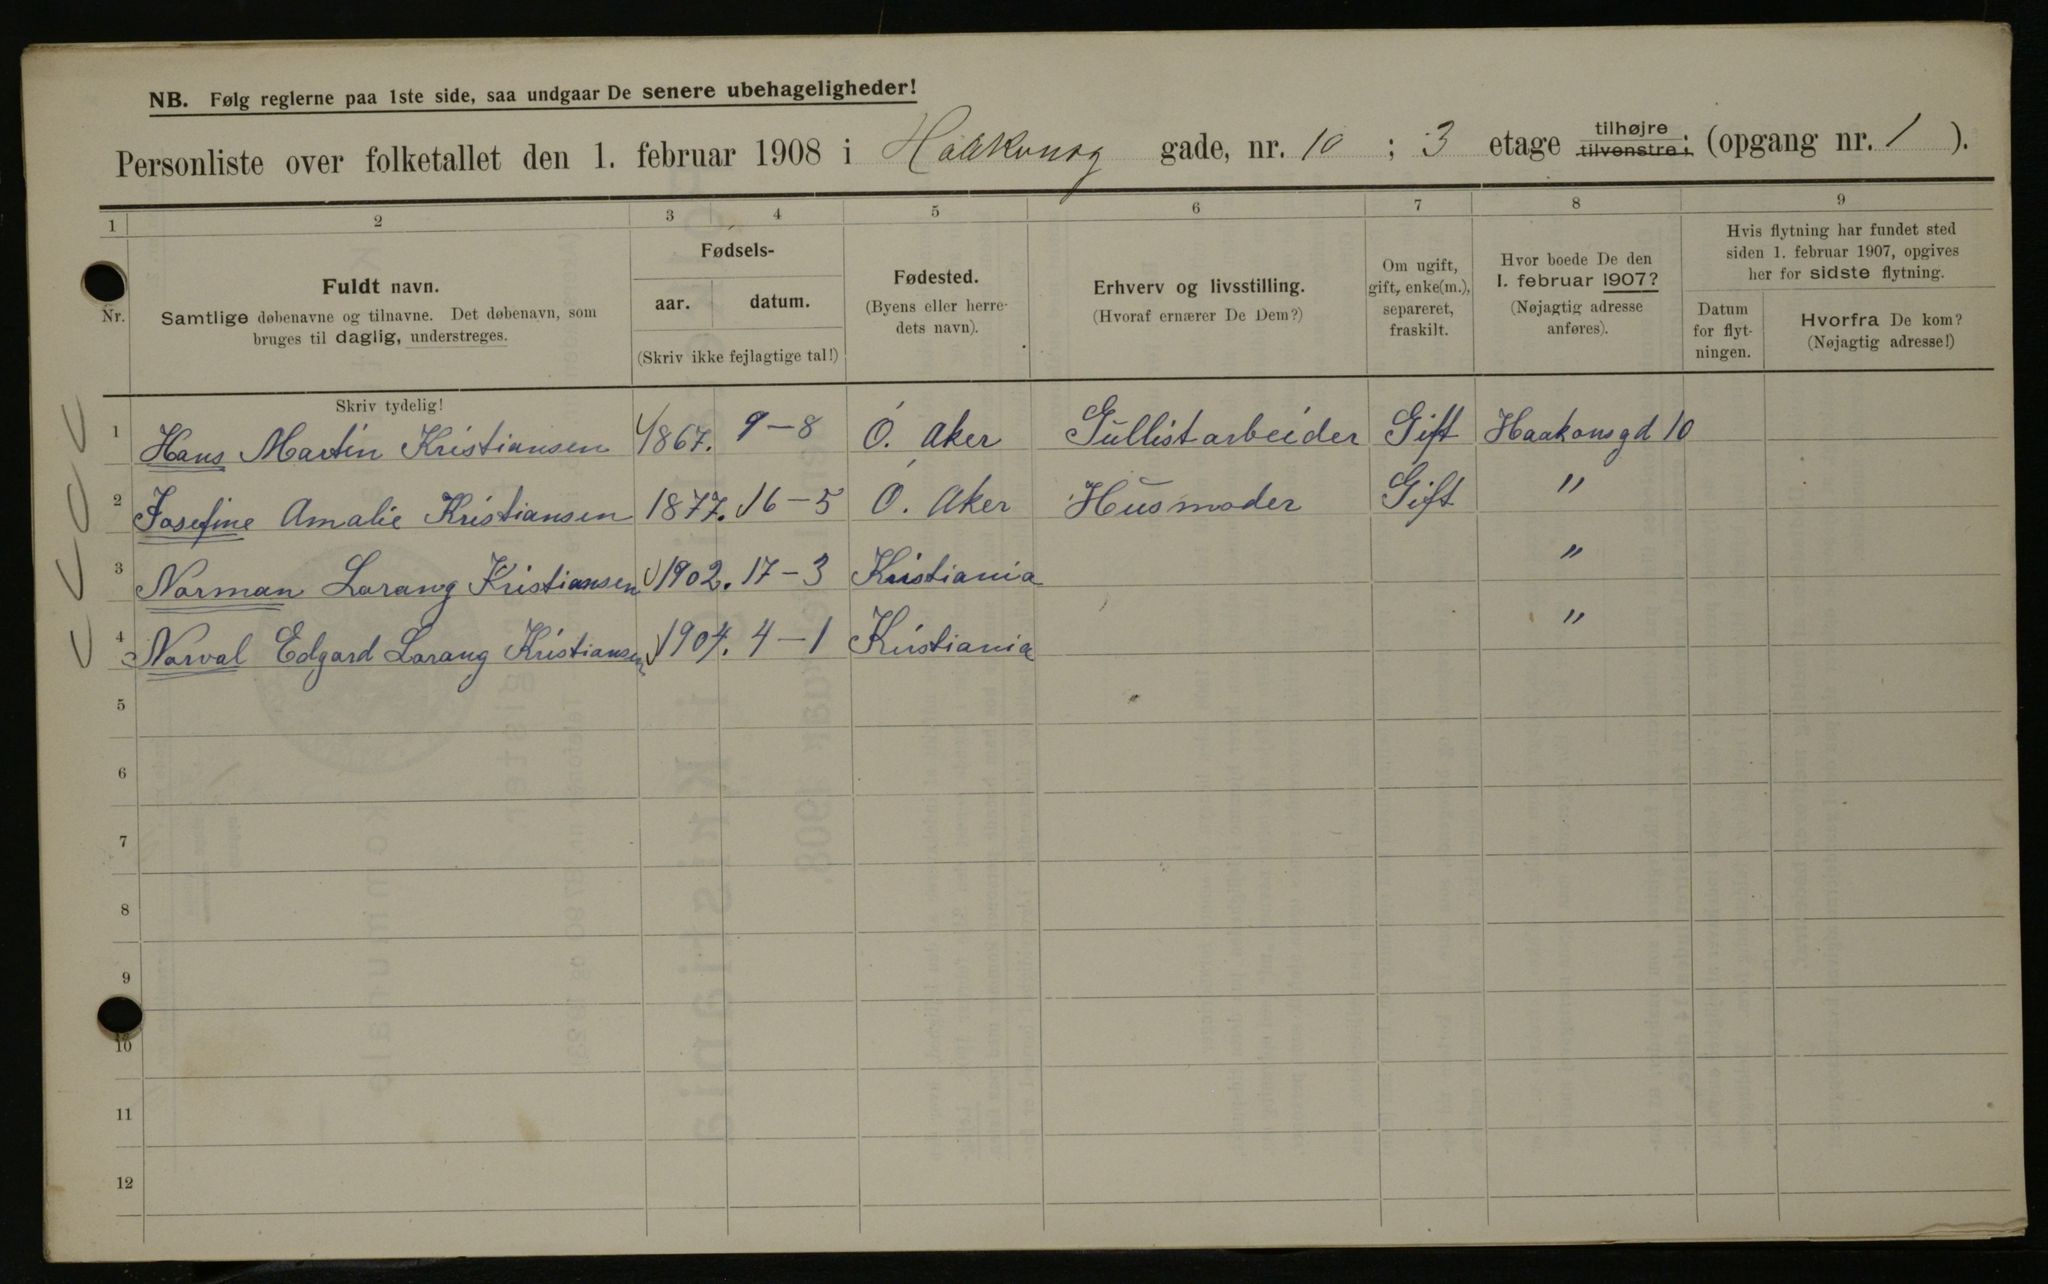 NB. Følg reglerne paa 1ste side, saa undgaar De senere ubehageligheder!
Personliste over folketallet den 1. februar 1908 i Haakonsg gade, nr. 10 ; 3 etage tilhøjre tilvenstre; (opgang nr. 1 ).
1 2 3 4 5 6 7 8 9
Nr.
Fuldt navn.
Samtlige døbenavne og tilnavne. Det døbenavn, som
bruges til daglig, understreges.
Skriv tydelig!
Fødsels-
aar. datum.
(Skriv ikke fejlagtige tal!)
Fødested.
(Byens eller herre-
dets navn).
Erhverv og livsstilling.
(Hvoraf ernærer De Dem?)
Om ugift,
gift, enke(m.),
separeret,
fraskilt.
Hvor boede De den
1. februar 1907?
(Nøjagtig adresse
anføres).
Hvis flytning har fundet sted
siden 1. februar 1907, opgives
her for sidste flytning.
Datum
for flyt-
ningen.
Hvorfra De kom?
(Nøjagtig adresse!)
1 Hans Martin Kristiansen 1867. 9-8 Ö. Aker Gullistarbeider Gift Haakonsgd 10
2 Josefine Amalie Kristiansen 1877. 16-5 Ö. Aker Husmoder Gift "
3 Norman Lorang Kristiansen 1902. 17-3 Kristiania "
4 Norval Edgard Lorang Kristiansen 1904. 4-1 Kristiania "
5
6
7
8
9
10
11
12